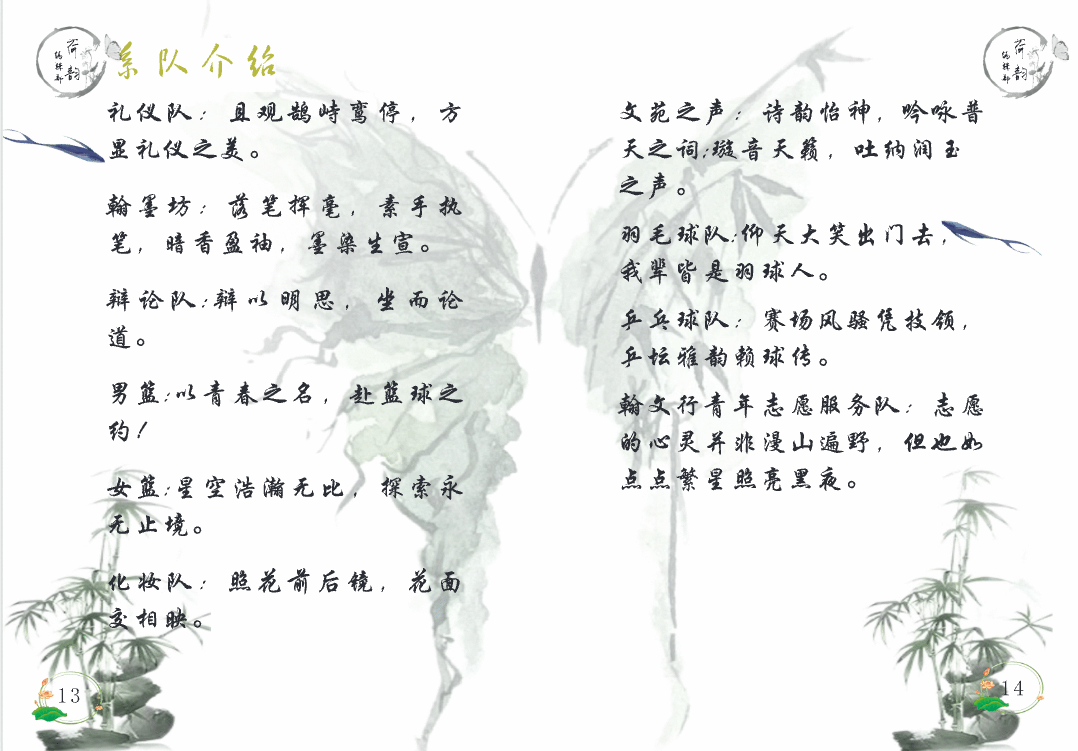 荷韵
编辑部
系队介绍
礼仪队：且观鹄峙鸾停，方
显礼仪之美。
翰墨坊：落笔挥毫，素手执
笔，暗香盈袖，墨染生宣。
辩论队:辩以明思，坐而论
道。
男篮:以青春之名，赴篮球之
约！
女篮:星空浩瀚无比，探索永
无止境。
化妆队：照花前后镜，花面
交相映。
13
荷韵
编辑部
文苑之声：诗韵怡神，吟咏普
天之词;璇音天籁，吐纳润玉
之声。
羽毛球队:仰天大笑出门去，
我辈皆是羽球人。
乒乓球队：赛场风骚凭技领，
乒坛雅韵赖球传。
翰文行青年志愿服务队：志愿
的心灵并非漫山遍野，但也如
点点繁星照亮黑夜。
14